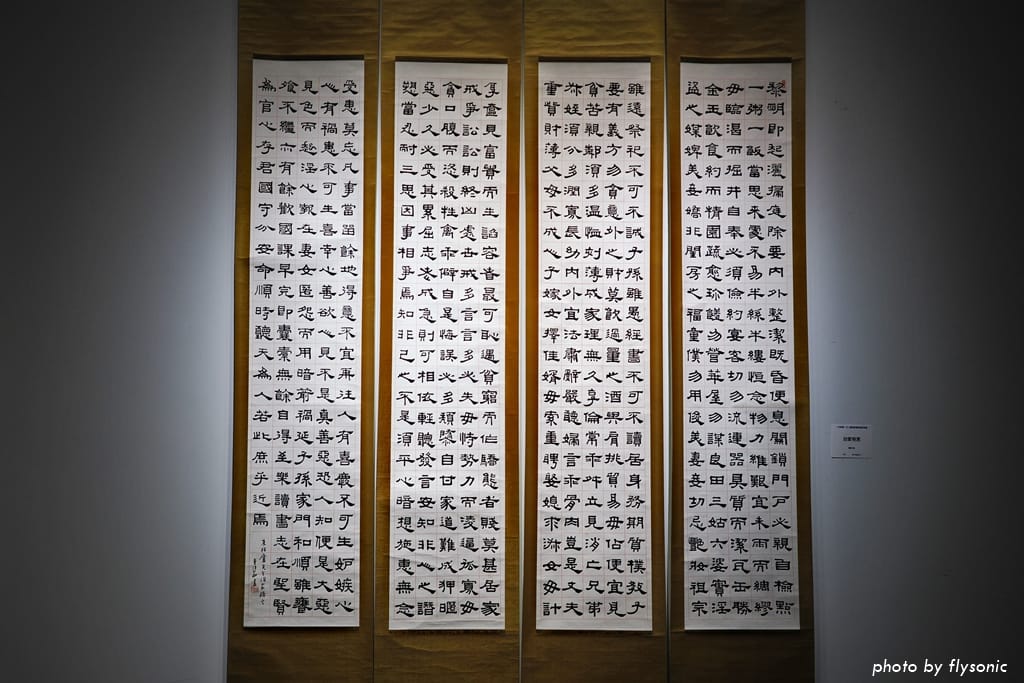 黎明即起灑掃庭除要內外整潔既昏便息關鎖門戶必親自檢點
一粥一飯當思來處不易半絲半縷恒念物力維艱宜未雨而綢繆
毋臨渴而掘井自奉必須儉約宴客切勿流連器具質而潔瓦缶勝
金玉飲食約而精園蔬愈珍饈勿營華屋勿謀良田三姑六婆實淫
盜之媒婢美妾嬌非閨房之福童僕勿用俊美妻妾切忌艷妝祖宗
雖遠祭祀不可不誠子孫雖愚經書不可不讀居身務期質樸教子
要有義方勿貪意外之財莫飲過量之酒與肩挑貿易毋佔便宜見
貧苦親鄰須多溫恤刻薄成家理無久享倫常乖舛立見消亡兄弟
叔姪須分多潤寡長幼內外宜法肅辭嚴聽婦言乖骨肉豈是丈夫
重貲財薄父母不成人子嫁女擇佳婿毋索重聘娶媳求淑女毋計
厚奩見富貴而生諂容者最可恥遇貧窮而作驕態者賤莫甚居家
戒爭訟訟則終凶處世戒多言言多必失毋恃勢力而凌逼孤寡毋
貪口腹而恣殺牲禽乖僻自是悔誤必多頹惰自甘家道難成狎暱
惡少久必受其累屈志老成急則可相依輕聽發言安知非人之譖
愬當忍耐三思因事相爭焉知非己之不是須平心暗想施惠無念
受恩莫忘凡事當留餘地得意不宜再往人有喜慶不可生妒嫉心
人有禍患不可生喜幸心善欲人見不是真善惡恐人知便是大惡
見色而起淫心報在妻女匿怨而用暗箭禍延子孫家門和順雖饔
飧不繼亦有餘歡國課早完即囊橐無餘自得至樂讀書志在聖賢
為官心存君國守分安命順時聽天為人若此庶乎近焉
photo by flysonic